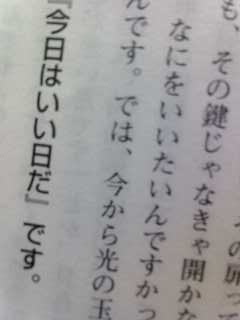 の扉って
も、その鍵じゃなきゃ開かな
なにをいいたいんですかっ
んです。では、今から光の玉
『今日はいい日だ』です。